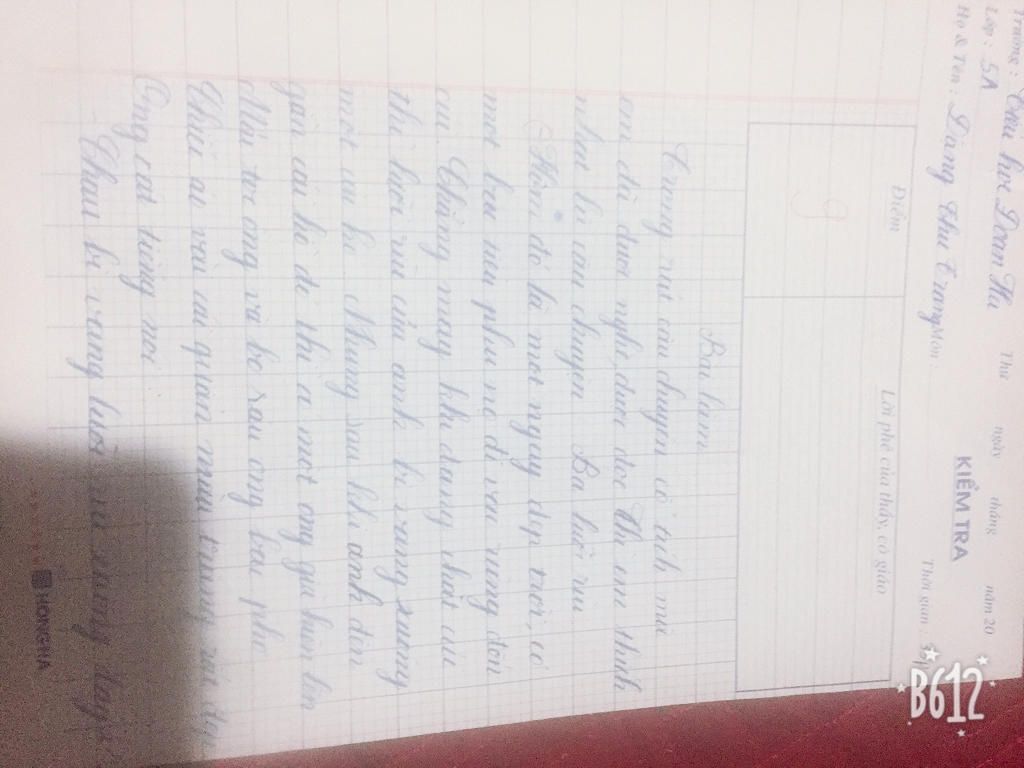 Trường : Tiểu học Đoàn Thị Thứ ngày tháng năm 20
Lớp : 5A KIỂM TRA
Họ & Tên : Đặng Thu Trang Môn : Thời gian :
Điểm Lời phê của thầy, cô giáo
9
Bài làm
Trong rất câu chuyện cổ tích mà
em đã được nghe, được đọc thì em thích
nhất là câu chuyện Ba lưỡi rìu
Hôm đó là một ngày đẹp trời, có
một bác tiều phu nọ đi vào rừng đốn
củi. Chẳng may khi đang chặt củi
thì lưỡi rìu của anh bị văng xuống
một cái hồ. Nhưng sau khi anh đến
gần cái hồ đó thì có một ông già hiện lên
Mái tóc ông và bộ râu ông bạc phơ
chiếc áo và cái quần màu trắng rất đẹp
Ông cất tiếng nói
Cháu bị văng lưỡi rìu xuống đây
HONG HA
B612